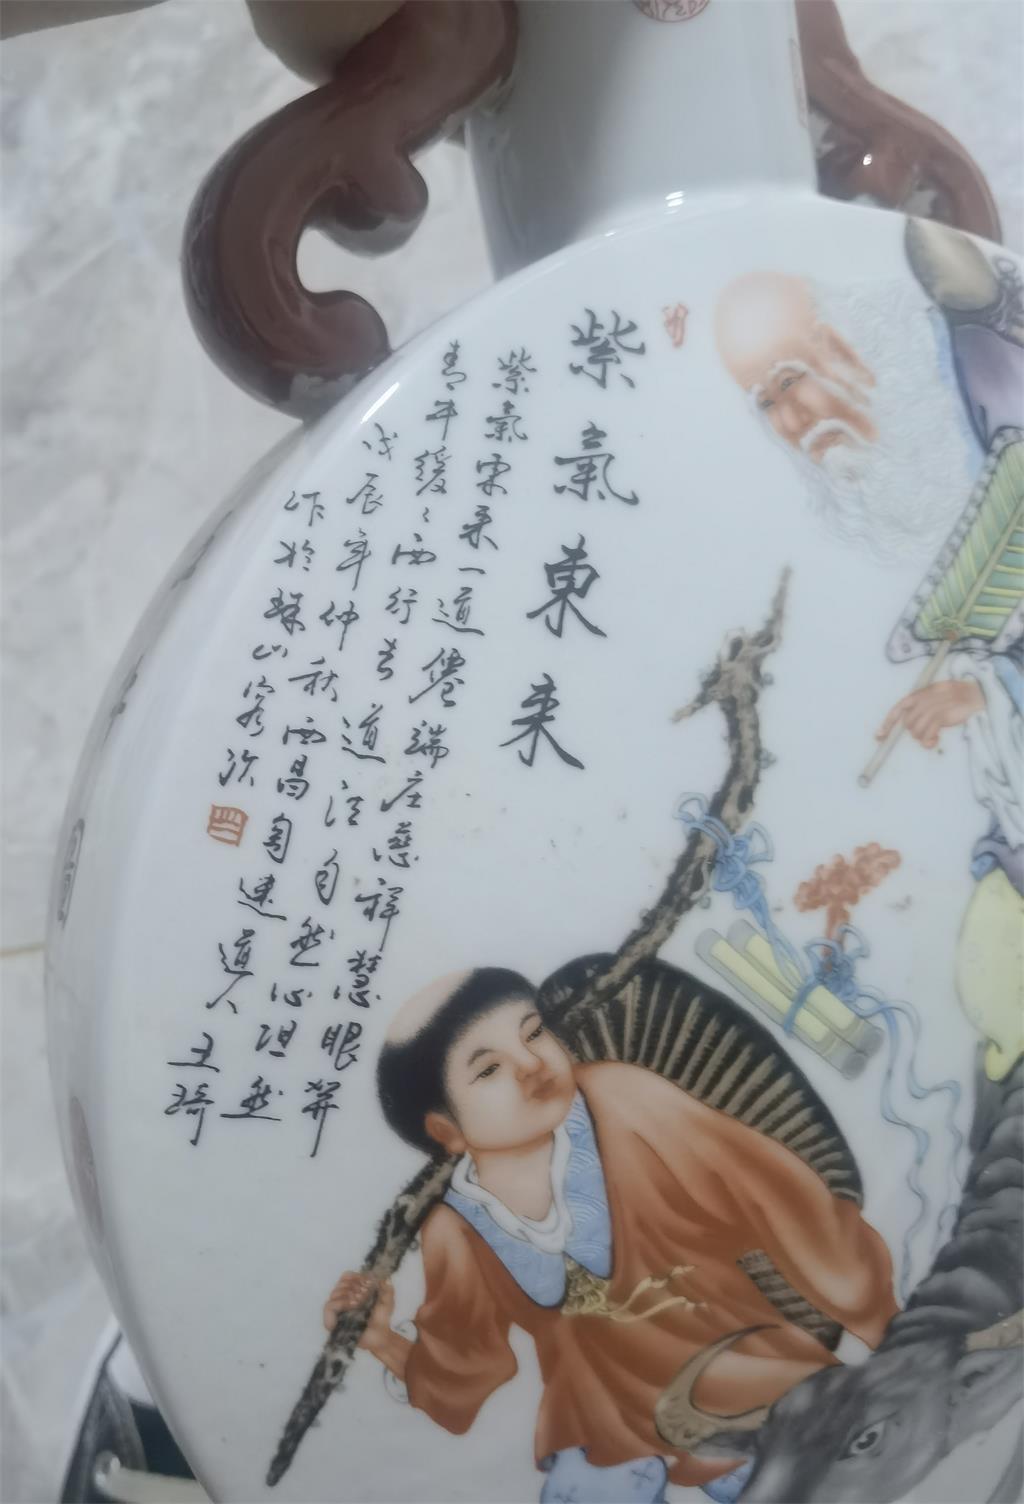 紫氣東来
紫氣東来一道僊端庄慈祥慧眼
青牛緩々西行去道法自然心坦然
戊辰年仲秋西昌匋迷道人王琦
作於珠山客次